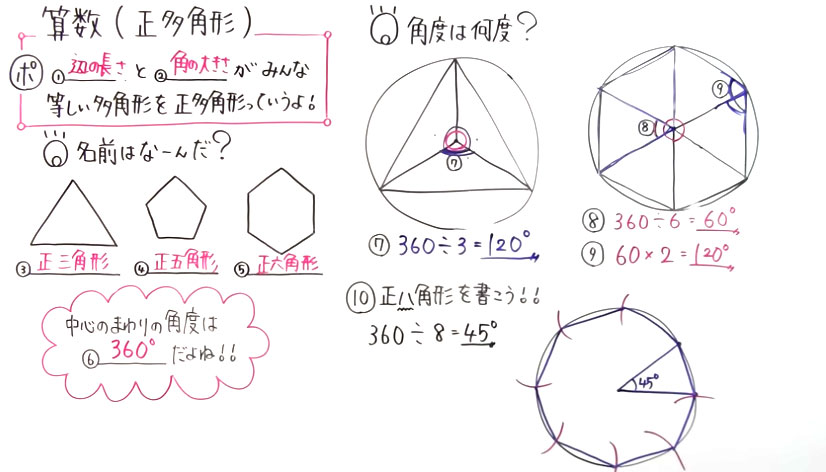 算数(正多角形)
ポ ①辺の長さと②角の大きさがみんな
等しい多角形を正多角形っていうよ!
名前はなーんだ?
③正三角形 ④正五角形 ⑤正六角形
中心のまわりの角度は
⑥360°だよね!!
角度は何度?
⑦
⑦360÷3=120°
⑧ ⑨
⑧360÷6=60°
⑨60×2=120°
⑩正八角形を書こう!!
360÷8=45°
45°